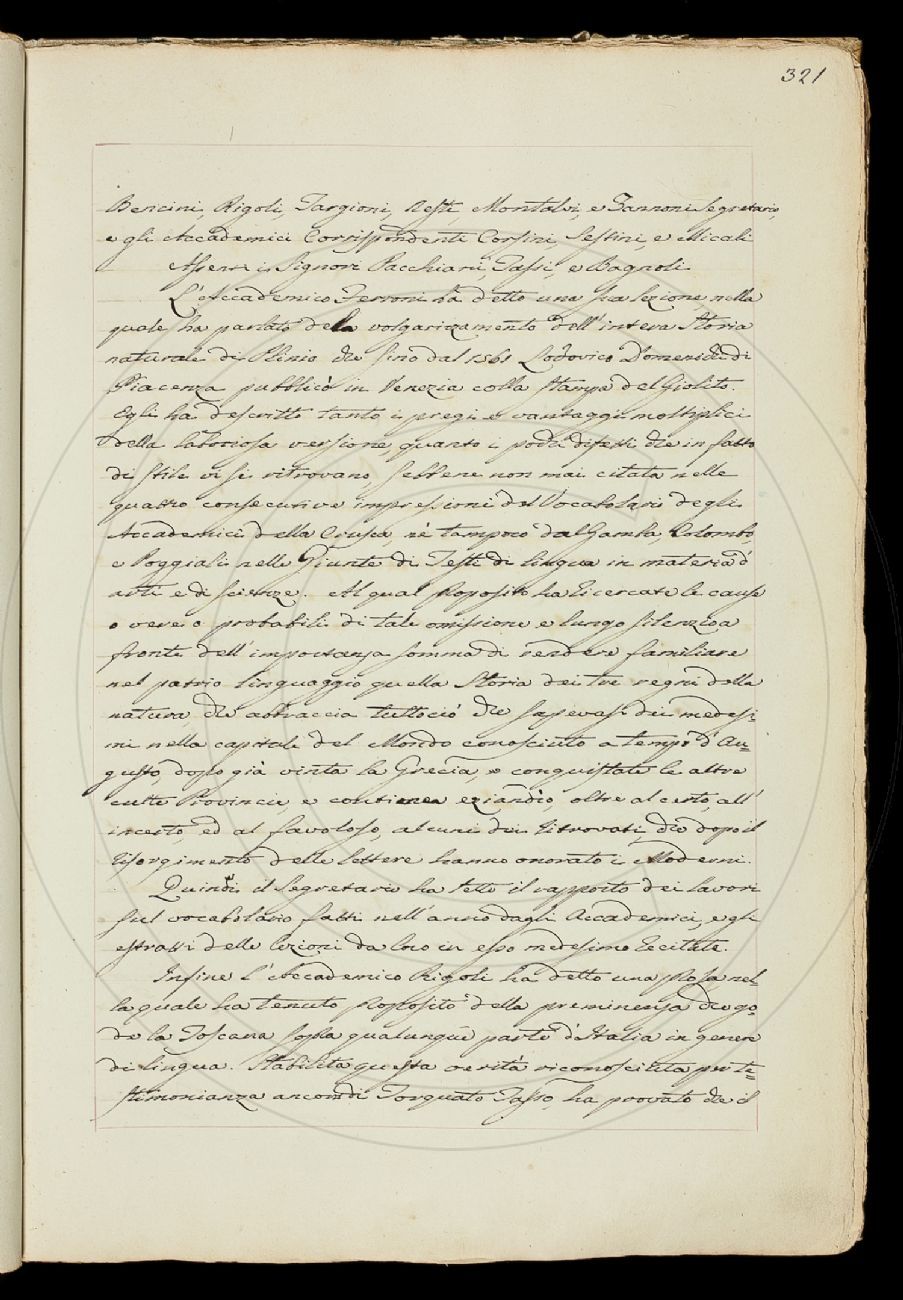 321
Bencini, Rigoli, Targioni, Nesti, Montalvi, e Zannoni Segretario,
e gli Accademici Corrispondenti Corsini, Sestini, e Micali
Assenti i Signori Pacchiani, Tassi, e Bagnoli.
L'Accademico Ferroni ha detto una sua lezione, nella
quale ha parlato della volgarizamento dell'intera Storia
naturale di Plinio che fino dal 1561 Lodovico Domenichi di
Piacenza pubblicò in Venezia colla stampa del Giolito
Egli ha descritto tanto i pregi e vantaggi moltiplici
della laboriosa versione, quanto i pochi difetti che in fatto
di stile vi si ritrovano, sebbene non mai citata nelle
quattro consecutive impressioni del Vocabolario degli
Accademici della Crusca, nè tampoco dal Gamba, Colombo,
e Poggiali nelle Giunte di Testi di lingua in materia d'
arti e di scienze. Al qual proposito ha ricercate le cause
o vere o probabili di tale omissione e lungo silenzio a
fronte dell'importanza somma di rendere familiare
nel patrio linguaggio quella Storia dei tre regni della
natura, che abbraccia tuttociò che sapevasi dei medesi-
mi nella capitale del Mondo conosciuto a tempi d'Au=
gusto, dopo già vinta la Grecia, e conquistate le altre
culte Provincie, e contiene eziandio, oltre al certo, all'
incerto, ed al favoloso, alcuni dei ritrovati, che dopo il
risorgimento delle lettere hanno onorato i Moderni.
Quindi il Segretario ha letto il rapporto dei lavori
sul vocabolario fatti nell'anno dagli Accademici, e gli
estratti delle lezioni da loro in esso medesimo recitate.
Infine l'Accademico Rigoli ha detto una prosa nel=
la quale ha tenuto proposito della preminenza che go=
de la Toscana sopra qualunque parte d'Italia in genere
di lingua. Stabilita questa verità riconosciuta per te=
stimonianza ancora di Torquato Tasso, ha provato che il